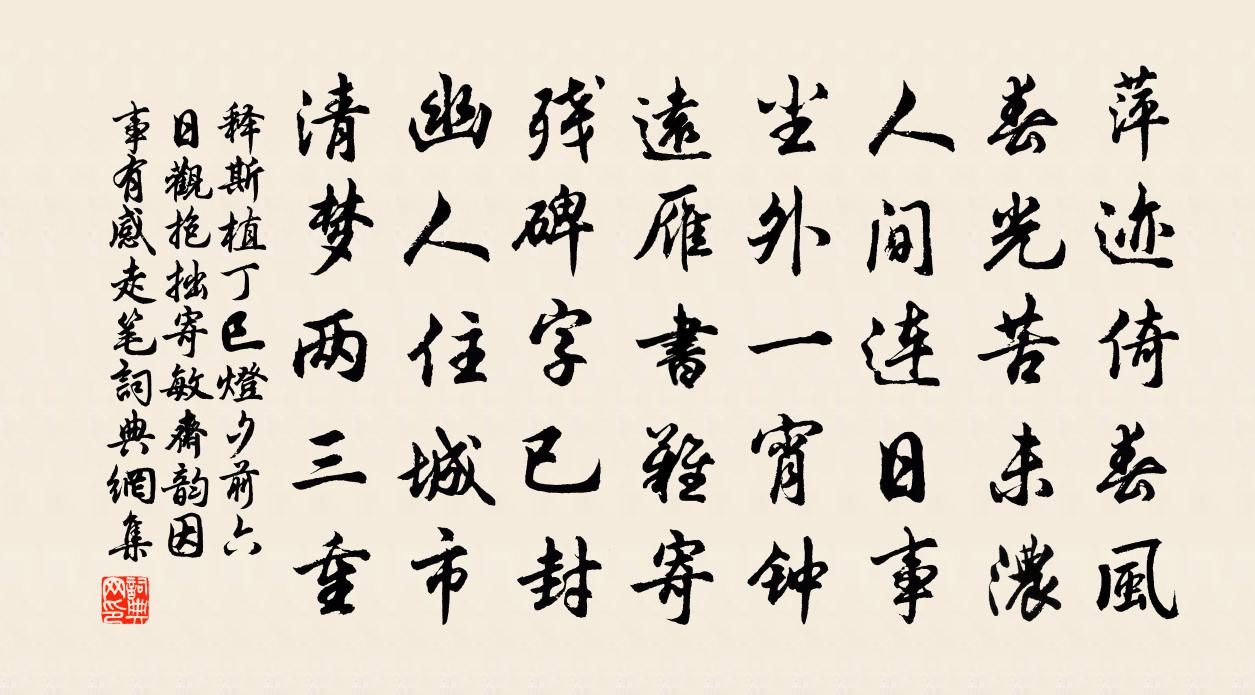 萍迹倚春風
春光苦未濃
人间连日事
尘外一宵钟
遠雁書難寄
残碑字已封
幽人住城市
清梦两三重
释斯植丁巳燈夕前六
日觀抱拙寄敏齋韵因
事有感走笔詞典網集